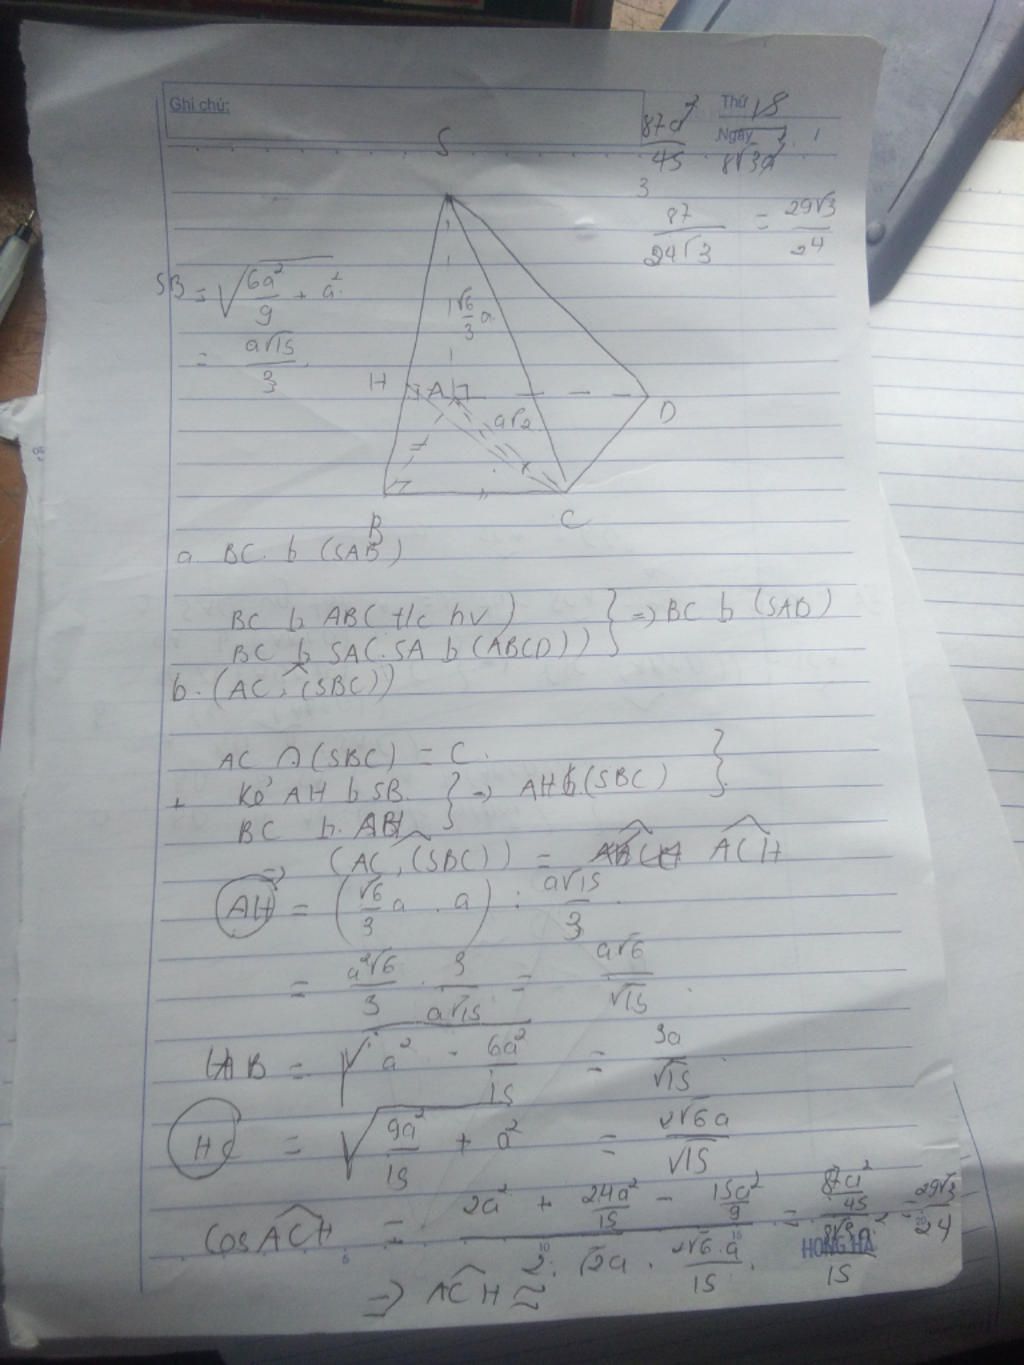 Ghi chú:
Thứ
Ngày
87a²/45
3
87/24√3 = 29√3/24
S
SB = √(6a²/9 + a²)
= a√15/3
√6/3 a
H A D
a√2
B C
a. BC b (SAB)
BC b AB (t/c hv) } => BC b (SAB)
BC b SA (SA b (ABCD)) }
b. (AC, (SBC))
AC ∩ (SBC) = C. }
+ Kẻ AH b SB } => AH b (SBC) }
BC b. AH }
=> (AC, (SBC)) = ACH
AH = (√6/3 a . a) : a√15/3
= a²√6/3 . 3/a√15 = a√6/√15
HB = √(a² - 6a²/15) = 3a/√15
HC = √(9a²/15 + a²) = 2√6a/√15
cos ACH = (2a² + 24a²/15 - 15a²/9) / (2. √2a . 2√6.a/15) = (87a²/45) / (8√3a²/15) = 29√3/24
HONG HA
=> ACH ≈